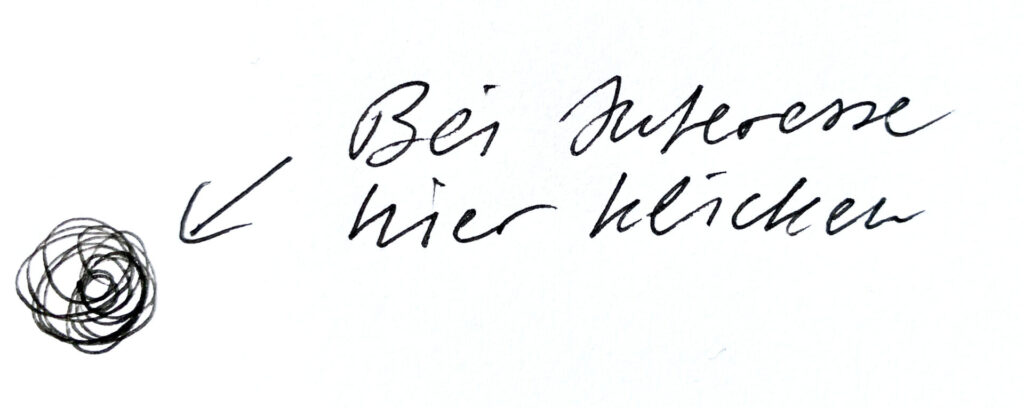 Bei Interesse
hier klicken